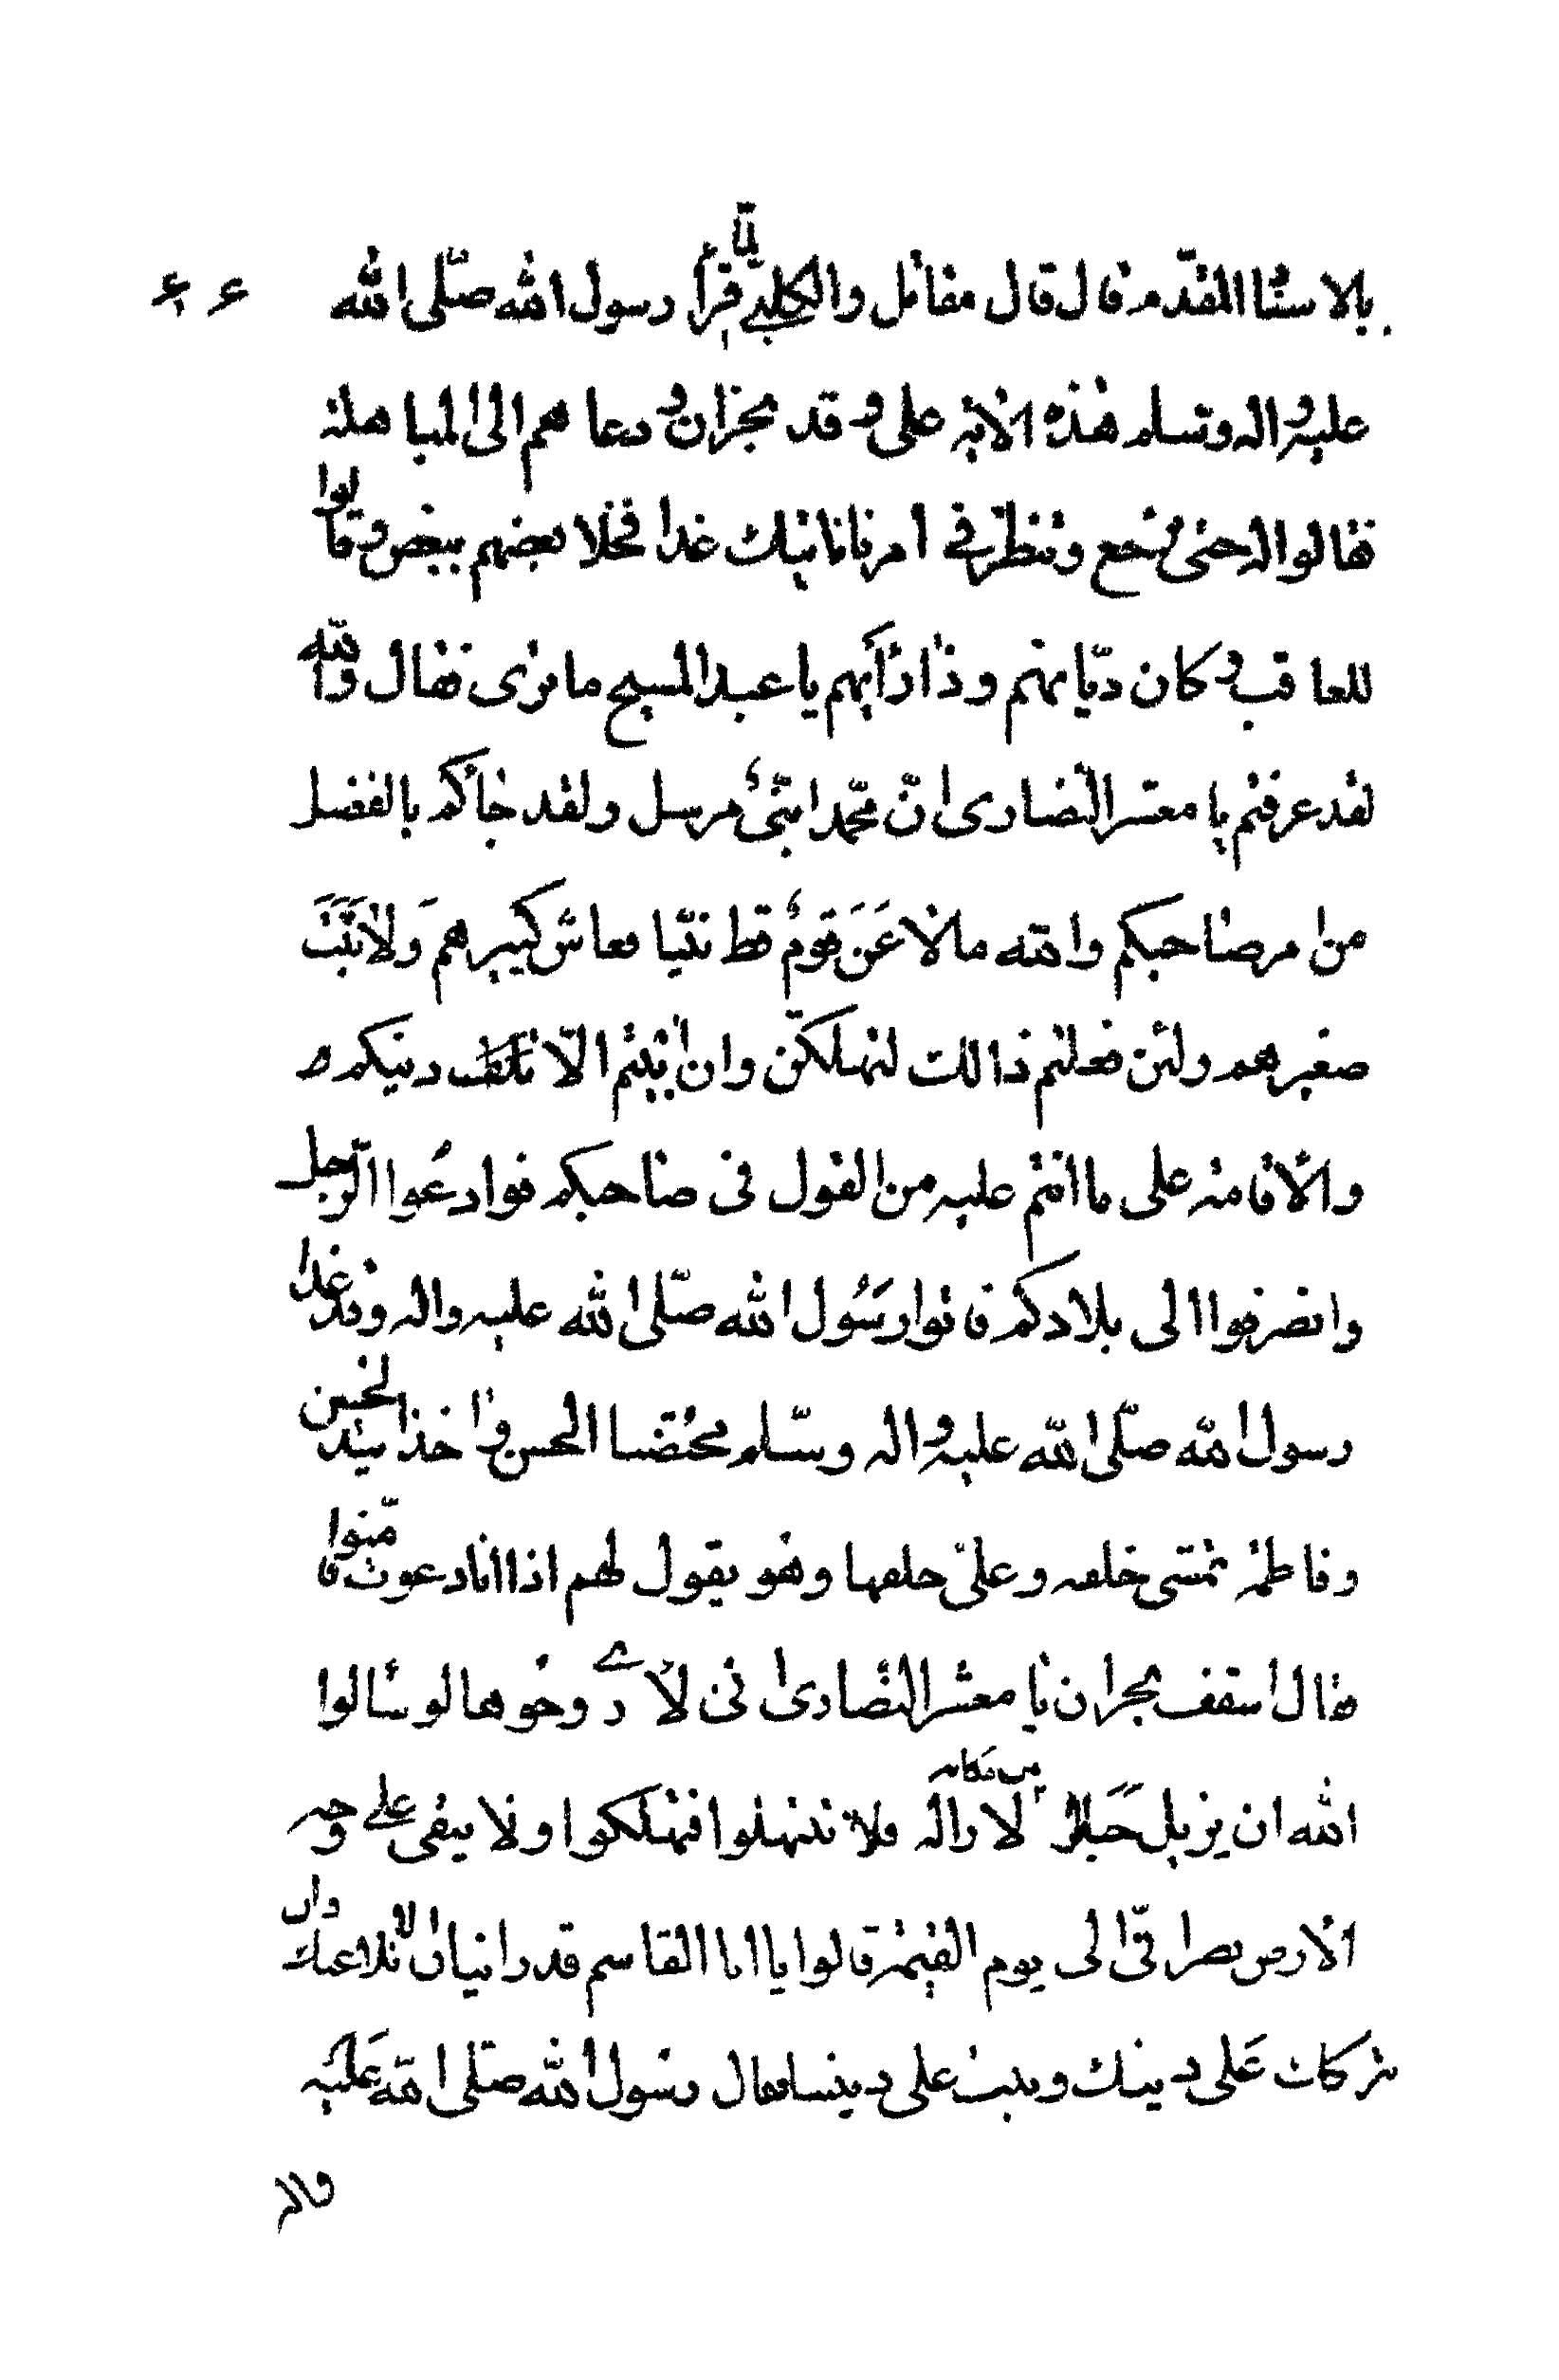 بالاسناد المقدم قال قال مقاتل والكلبي لما قرأ رسول الله صلى الله
عليه واله وسلم هذه الاية على وفد نجران ودعاهم الى المباهلة
فقالوا له حتى نرجع وننظر في امرنا ناتيك غدا فخلا بعضهم ببعض وقالوا
للعاقب وكان ديانهم وذا رأيهم يا عبد المسيح ما ترى فقال والله
لقد عرفتم يا معشر النصارى ان محمدا نبيٌ مرسل ولقد جاءكم بالفضل
من امر صاحبكم والله ما لاعَنَ قومٌ قط نبيا فعاش كبيرهم وَلا نَبَتَ
صغيرهم ولئن فعلتم ذالك لتهلكن وان ابيتم الّا تلف دينكم
والاقامة على ما انتم عليه من القول في صاحبكم فوادعوا الرجل
وانصرفوا الى بلادكم فاتوا رَسُول الله صلّى الله عليه واله وقد غدا
رسول الله صلّى الله عليه واله وسلم محتضنا الحسن واخذا بيد الحسين
وفاطمة تمشي خلفه وعليٌ خلفها وهو يقول لهم اذا انا دعوت فامّنوا
فقال اسقف نجران يا معشر النصارى انى لارى وجوها لو سألوا
الله ان يزيل جَبلا من مكانه لازاله فلا تبتهلوا فتهلكوا ولا يبقى على وجه
الارض نصراني الى يوم القيمة قالوا يا ابا القاسم قد راينا ان لا نلاعنك وان
نتركك عَلى دينك ونثبت على ديننا فقال رسول الله صلى الله عَليه
واله